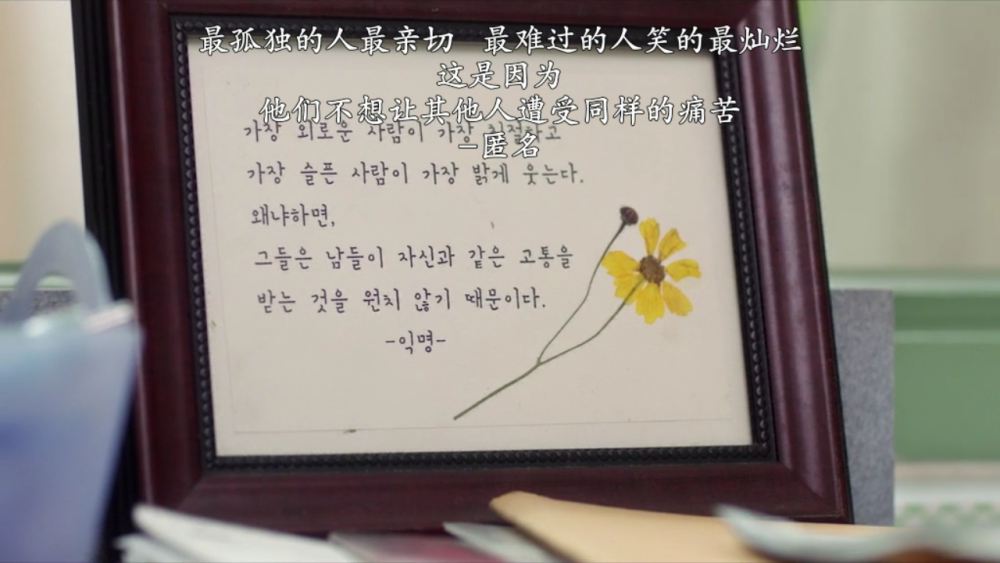 最孤独的人最亲切 最难过的人笑的最灿烂
这是因为
他们不想让其他人遭受同样的痛苦
-匿名
가장 외로운 사람이 가장 친절하고
가장 슬픈 사람이 가장 밝게 웃는다.
왜냐하면,
그들은 남들이 자신과 같은 고통을
받는 것을 원치 않기 때문이다.
-익명-